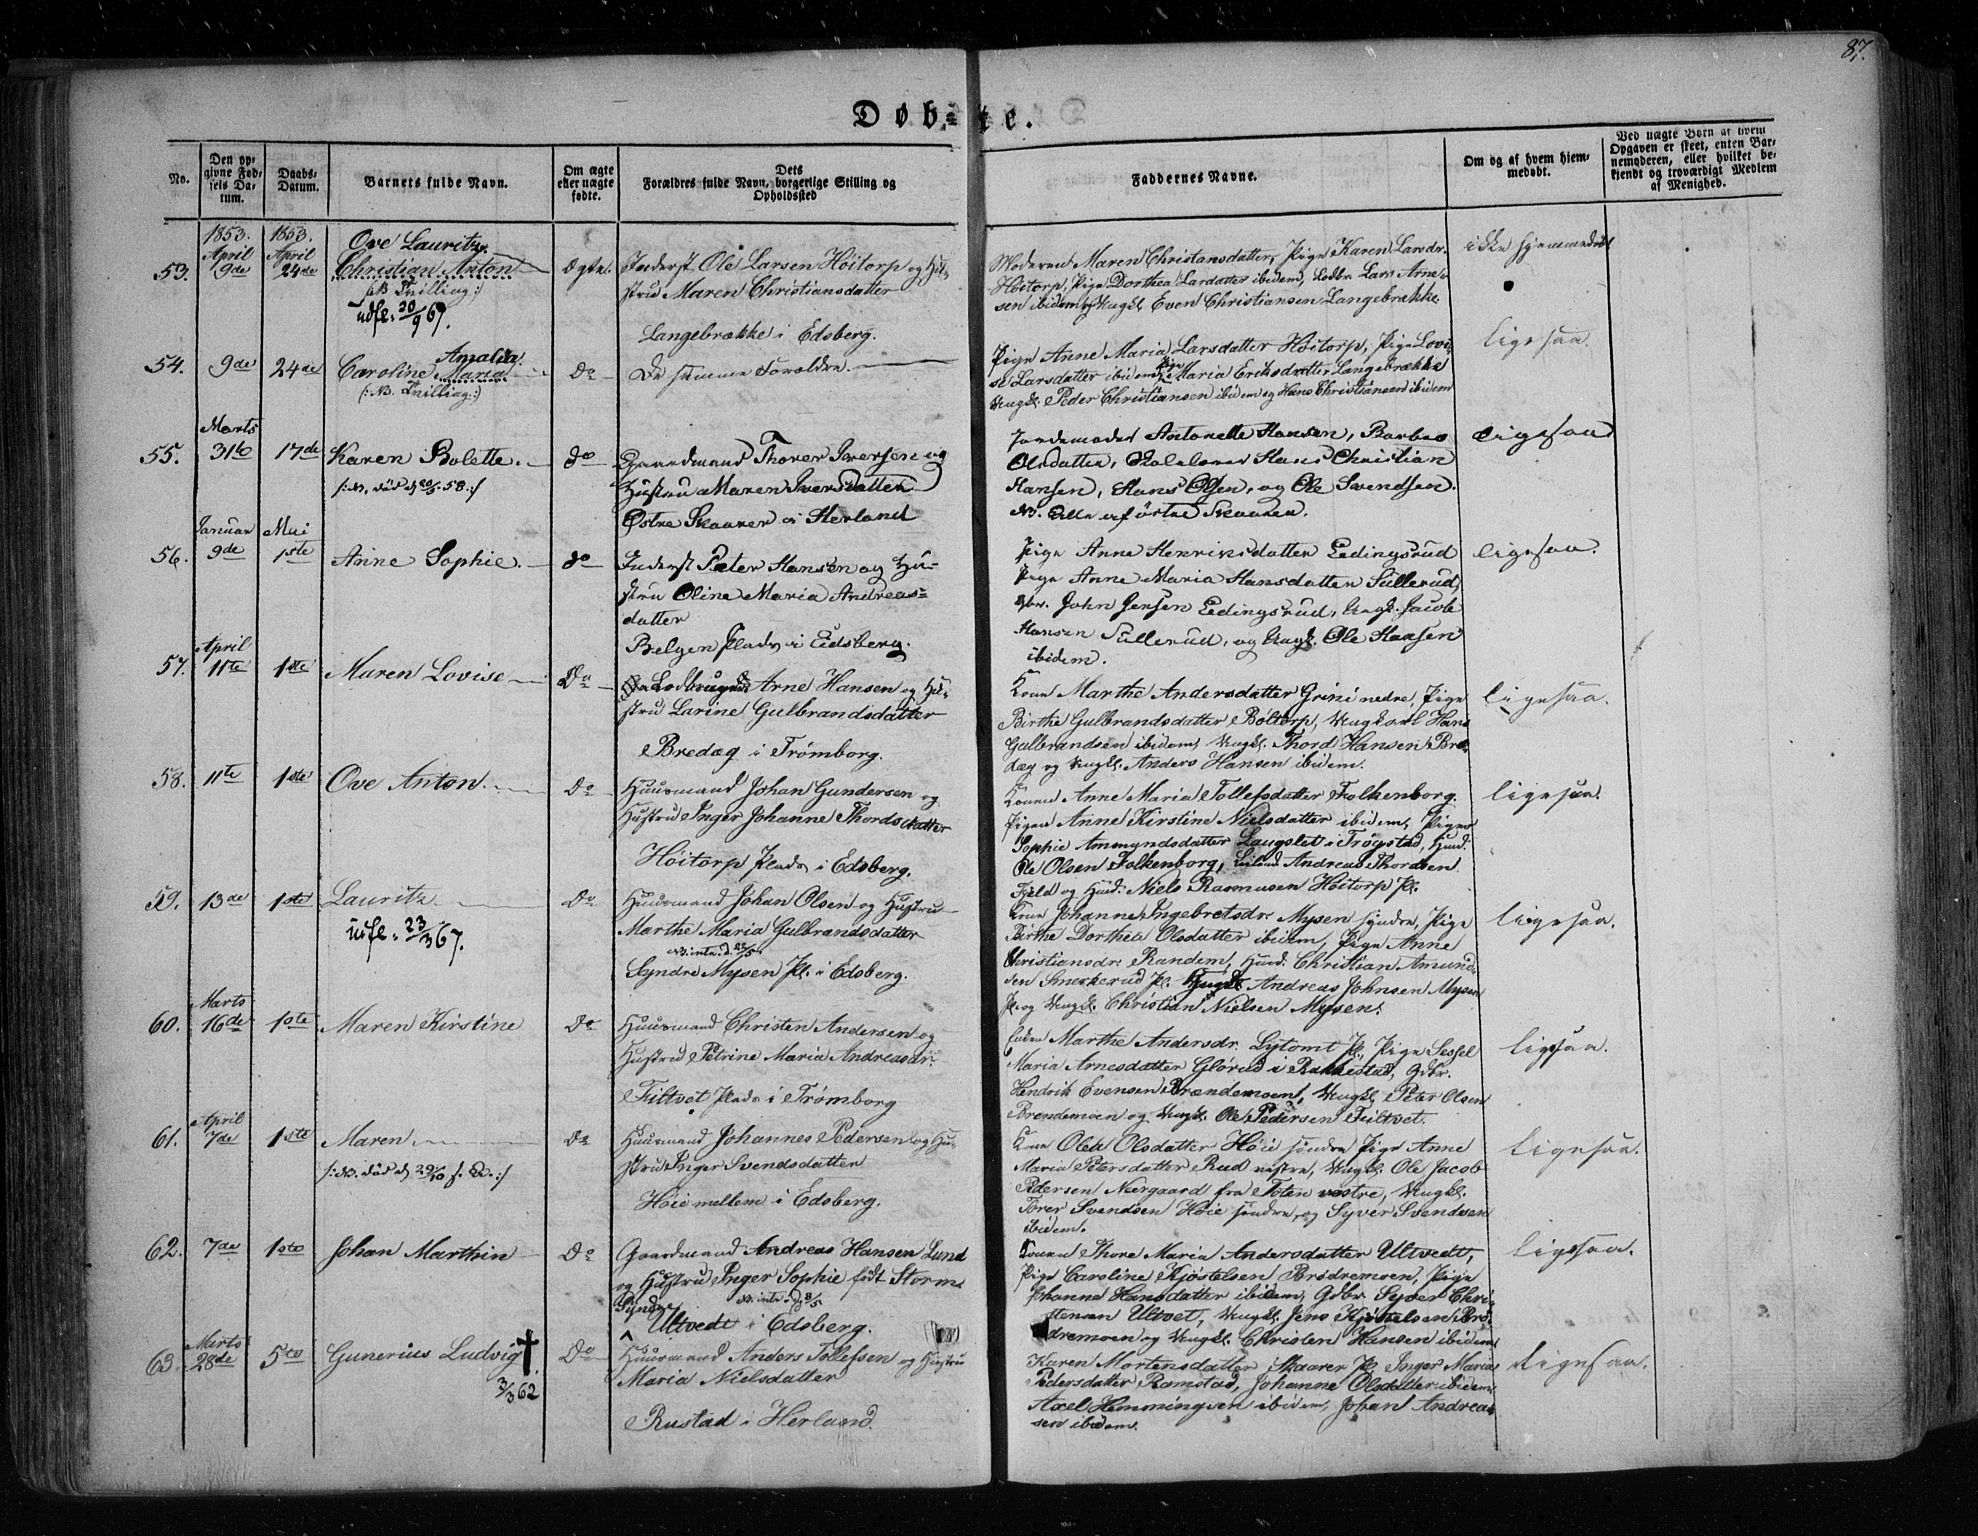 87.
Døb=te.
No.
Den op=
givne Fød=
sels Da=
tum.
Daabs=
Datum.
Barnets fulde Navn.
Om ægte
eller uægte
fødte.
Dets
Forældres fulde Navn, borgerlige Stilling og
Opholdssted
Faddernes Navne.
Om og af hvem hjem=
medøbt.
Ved uægte Børn af hvem
Opgaven er skeet, enten Bar=
nemoderen, eller hvilket be=
kjendt og troværdigt Medlem
af Menighed.
1853. 1853.
April April
53. 9de 24de
Ove Lauritz
Christian Anton
(:NB Tvilling:)
udfl: 30/9 67.
Ægte.
Inderst Ole Larsen Höitorp og Hu=
stru Maren Christiansdatter
Langebrække i Edsberg.
Moderen Maren Christansdatter, Pige Karen Larsdr.
Höitorp, Pige Dorthea Larsdatter ibidem, Lodbr. Lars Arne=
sen ibidem og Ungk. Even Christiansen Langebrække.
ikke hjemmedøbt
54. 9de 24de
Caroline Amalia
Maria
(:NB. Tvilling:)
Do
De samme Forældre.
Pige Anne Maria Larsdatter Höitorp, Pige Lovi=
se Larsdatter ibidem, Pige Maria Eriksdatter Langebrække
Ungk. Peder Christiansen ibidem og Hans Christiansen ibidem
ligesaa.
Marts
55. 31te 17de
Karen Bolette.
/:NB. död d 20/5 58:/
do
Gaardmand Thorer Iversen og
Hustru Maren Iversdatter
Østre Skaarer i Herland
Jordemoder Antonette Hansen, Barbro
Olsdatter, Skolelærer Hans Christian
Hansen, Hans Olsen, og Ole Svendsen.
NB. Alle af östre Skaarer.
ligesaa
Januar Mai
56. 9de 1ste
Anne Sophie.
do
Inderst Peter Hansen og Hu=
stru Oline Maria Andreas=
datter
Belgen Plads i Eidsberg.
Pige Anne Henriksdatter Eedingsrud
Pige Anne Maria Hansdatter Sullerud,
Gbr. John Jensen Eedingsrud, Ungk. Jacob
Hansen Sullerud, og Ungk. Ole Hansen
ibidem.
ligesaa.
April
57. 11te 1ste
Maren Lovise
Do
Lodbruger Arne Hansen og Hu=
stru Larine Gulbrandsdatter
Bredæg i Trömborg.
Kone Marthe Andersdatter Grini nedre, Pige
Birthe Gulbrandsdatter Böltorp, Ungkarl Hans
Gulbrandsen ibidem, Ungk. Thord Hansen Bre=
dæg og Ungk. Anders Hansen ibidem.
ligesaa.
58. 11te 1ste
Ove Anton.
Do
Huusmand Johan Gundersen og
Hustru Inger Johanne Thordsdatter
Höitorp Plads i Edsberg.
Konen Anne Maria Tollefsdatter Folkenborg.
Pigen Anne Kirstine Nielsdatter ibidem, Pigen
Sophie Ammundsdatter Langslet i Trögstad, Huusd.
Ole Olsen Folkenborg, Andreas Thordsen
Fjeld og Huusd. Niels Rasmusen Höitorp Pl.
ligesaa.
59. 13de 1ste
Lauritz
udfl: 23/3 67.
Do
Huusmand Johan Olsen og Hustru
Marthe Maria Gulbrandsdatter
NB. intr. d. 22/5.
Syndre Mysen Pl. i Edsberg.
Kone Johanne Ingebretsdr. Mysen syndre, Pige
Birthe Dorthea Olsdatter ibidem, Pige Anne
Christiansdr. Randem, Huusd. Christian Amund=
sen Smerkerud Pl. Ungk. Andreas Johnsen Mysen
Pl. og Ungk. Christian Nielsen Mysen.
ligesaa.
Marts
60. 16de 1ste
Maren Kirstine
Do
Huusmand Christen Andersen og
Hustru Petrine Maria Andreasdr.
Fultvet Plads i Trömborg
Enken Marthe Andersdr. Lytomt Pl. Pige Sessel
Maria Arnesdatter Glörud i Rakkestad, Gdbr.
Hendrik Evensen Brændemoen, Ungk. Peter Olsen
Brendemoen og Ungk. Ole Pedersen Fultvet.
ligesaa.
April
61. 7de 1ste
Maren
/:NB. död d 29/10 s. A.:/
Do
Huusmand Johannes Pedersen og Hu=
stru Inger Svendsdatter
Höie mellem i Edsberg.
Kone Olea Olsdatter Höie söndre Pige Anne
Maria Petersdatter Rud vestre, Ungk. Ole Jacob
Pedersen Neergaard fra Toten vestre, Ungk.
Torer Svendsen Höie söndre, og Syver Svendsen
ibidem.
ligesaa.
62. 7de 1ste
Johan Marthin
Do
Gaardmand Andreas Hansen Lund
og Hustru Inger Sophie födt Storm
NB. intr. d 8/5
Syndre
Ultvedt i Edsberg.
Konen Thore Maria Andersdatter Ultvedt,
Pige Caroline Kjöstelsen Brödremoen, Pige
Johanne Hansdatter ibidem, Gdbr. Syver Chri=
stensen Ultvet, Ungk. Jens Kjöstelsen Brö=
dremoen og Ungk. Christen Hansen ibidem
ligesaa.
Marts
63. 28de 5te
Gunerius Ludvig †.
3/3 62
Do
Huusmand Anders Tollefsen og Hustru
Maria Nielsdatter
Rustad i Herland.
Karen Mortensdatter Skaarer Pl. Inger Maria
Pedersdatter Ramstad, Johanne Olsdatter ibidem
Axel Hemmingsen ibidem, Johan Andrea=
sen ibidem.
ligesaa.